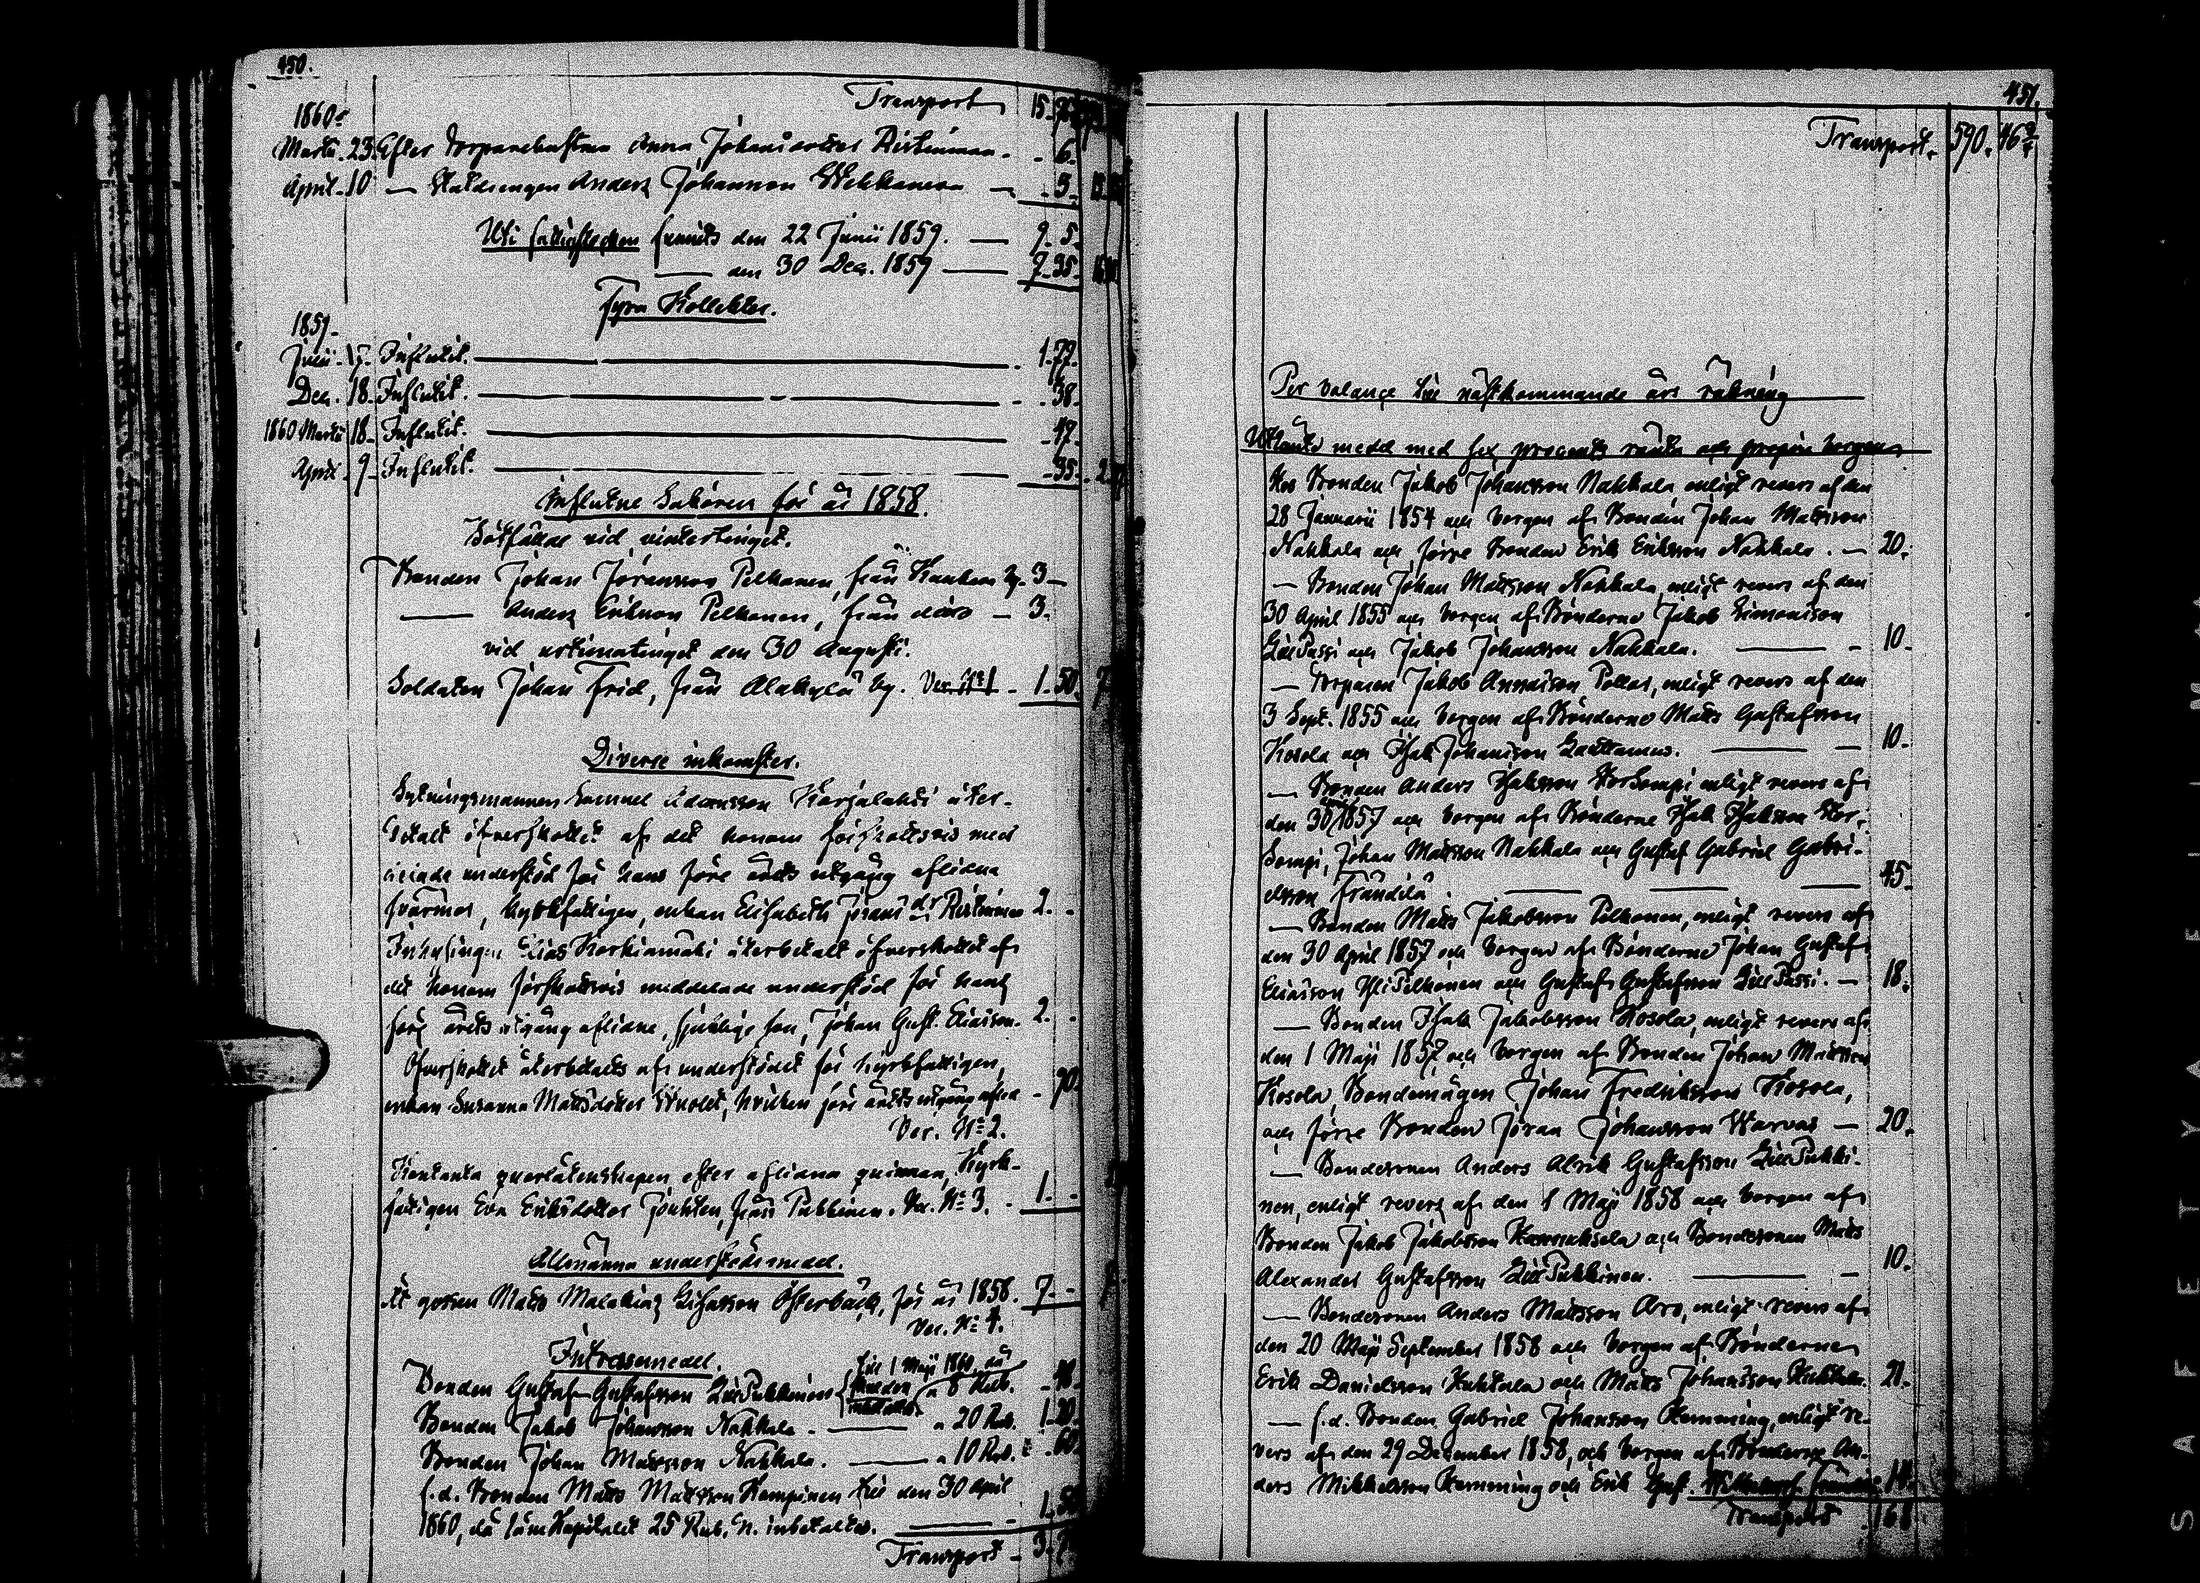 450.
Transport 15.
1860.
Martii 23. Efter torparehustrun Anna Johansdotter Ristimaa - 6.
April 10 — Statdrengen Anders Johansson — - 5.
Uti fattigstocken funnits den 22 Junii 1859. — 9. 5.
— den 30 Dec. 1859 — 7. 95.
Fyra Kollekter.
1859.
Junii Influtit. — 1. 77.
Dec. 18. Influtit. — - 38.
1860 Martii 18. Influtit. — - 47.
April 9. Influtit. — - 35.
Influtne Sakören för år 1858.
Bötfällde vid vintertinget.
Bonden Johan Jöransson Pelkonen, från by. 3 —
— Anders Eriksson Pelkonen, från dito — 3.
vid urtimatinget den 30 Augusti.
Soldaten Johan Frid, från Alakylä by. Ver. Nº 1 - 1. 50.
Diverse inkomster.
Sytningsmannen Samuel Adamsson Karjalahti åter-
betalt öfverskottet af det honom förskottsvis med
understöd för hans före årets utgång aflidna
svärmor, kyrkfattigen, enkan Elisabeth Jörans dr Ristimaa 2. -
Inhysingen Elias Korkiamäki återbetalt öfverskottet af
det honom förskottsvis meddelade understöd för hans
före årets utgång aflidne, sjuklige son, Johan Gust. Eliasson. 2. -
Öfverskottet återbetalts af understödet för kyrkfattigen,
enkan Susanna Mattsdotter hvilken före årets utgång afled - 70.
Ver. Nº 2.
Kontanta qvarlåtenskapen efter aflidna qvinnan, Kyrk-
fattigen Eva Eriksdotter från Pukkinen. Ver. Nº 3. - 1. -
Allmänna understödsmedel.
åt gossen Matts Malakias Österbäck, för år 1858. 7. -
Ver. Nº 4.
Intressemedel.
till 1 Maji 1860, då
Bonden Gustaf Gustafsson LillPukkinen a 8 Rub. - 48.
Bonden Jakob Johansson Nahkala - — a 20 Rub. 1. 20.
Bonden Johan Mattsson Nahkala. — a 10 Rub. - 60.
f.d. Bonden Matts Mattsson Kempinen till den 30 April
1860, då Kapitalet 25 Rub. S. inbetaltes. — 1. 50
Transport - 3.
451.
Transport. 590. 46
Per balance till nästkommande års räkning
Utlånte medel med sex procents ränta och proprie borgen
Hos Bonden Jakob Johansson Nahkala, enligt revers af den
28 Januarii 1854 och borgen af Bonden Johan Mattsson
Nahkala och förre Bonden Erik Eriksson Nahkala. — 20.
— Bonden Johan Mattsson Nahkala, enligt revers af den
30 April 1855 och borgen af Bönderne Jakob Simonsson
LillPassi och Jakob Johansson Nahkala. — 10.
— Torparen Jakob Annaisson Pollar, enligt revers af den
3 Sept. 1855 och borgen af Bönderne Matts Gustafsson
Kosola och Isak Johansson Lautamus. — 10.
— Bonden Anders Isaksson Korkempi enligt revers af
den 30 1857 och borgen af Bönderne Isak Isaksson Kor-
kempi, Johan Mattsson Nahkala och Gustaf Gabriel Gabri-
elsson Frändilä. — 45.
— Bonden Matts Jakobsson Pelkonen, enligt revers af
den 30 April 1857 och borgen af Bönderne Johan Gustaf
Eliasson YliPelkonen och Gustaf Gustafsson LillPassi. — 18.
— Bonden Isak Jakobsson Kosola, enligt revers af
den 1 Maji 1857 och borgen af Bonden Johan Mattsson
Kosola, Bondemågen Johan Fredriksson Kosola,
och förre Bonden Jöran Johansson Warvas — 20.
— Bondesonen Anders Alrik Gustafsson LillPukki-
nen, enligt revers af den 1 Maji 1858 och borgen af
Bonden Jakob Jakobsson Kannuksela och Bondesonen Matts
Alexander Gustafsson LillPukkinen. — 10.
— Bondesonen Anders Mattsson Aro, enligt revers af
den 20 Maji September 1858 och borgen af Bönderne
Erik Danielsson Huhtala och Matts Johansson 21.
— f.d. Bonden Gabriel Johansson Hemming, enligt re-
vers af den 29 December 1858, och borgen af Bönderne An-
ders Mikkelsson Hemming och Erik Gust. 14.
Transport 168
SAFETY FILM